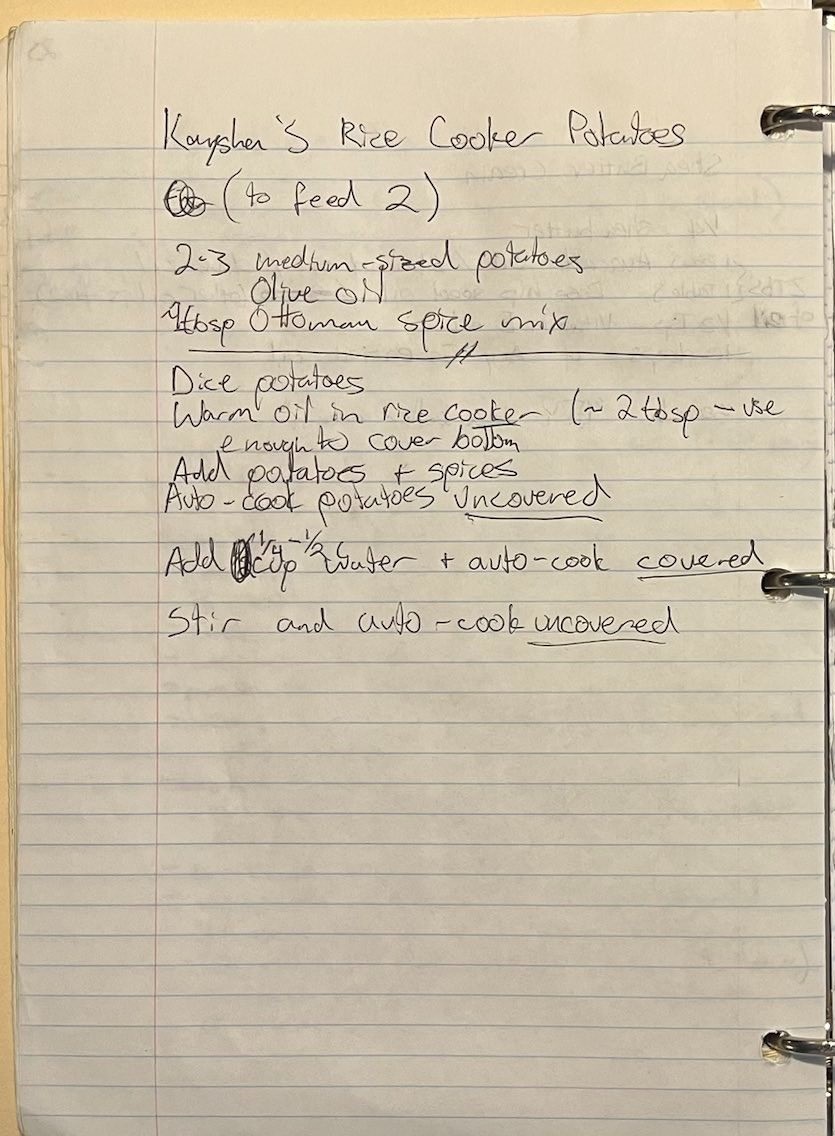 Kaysha's Rice Cooker Potatoes
(to feed 2)
2-3 medium-sized potatoes
Olive Oil
~1tbsp Ottoman spice mix
Dice potatoes
Warm oil in rice cooker (~ 2 tbsp - use
enough to cover bottom
Add potatoes + spices
Auto-cook potatoes uncovered
Add 1/4 - 1/2 cup water + auto-cook covered
Stir and auto-cook uncovered